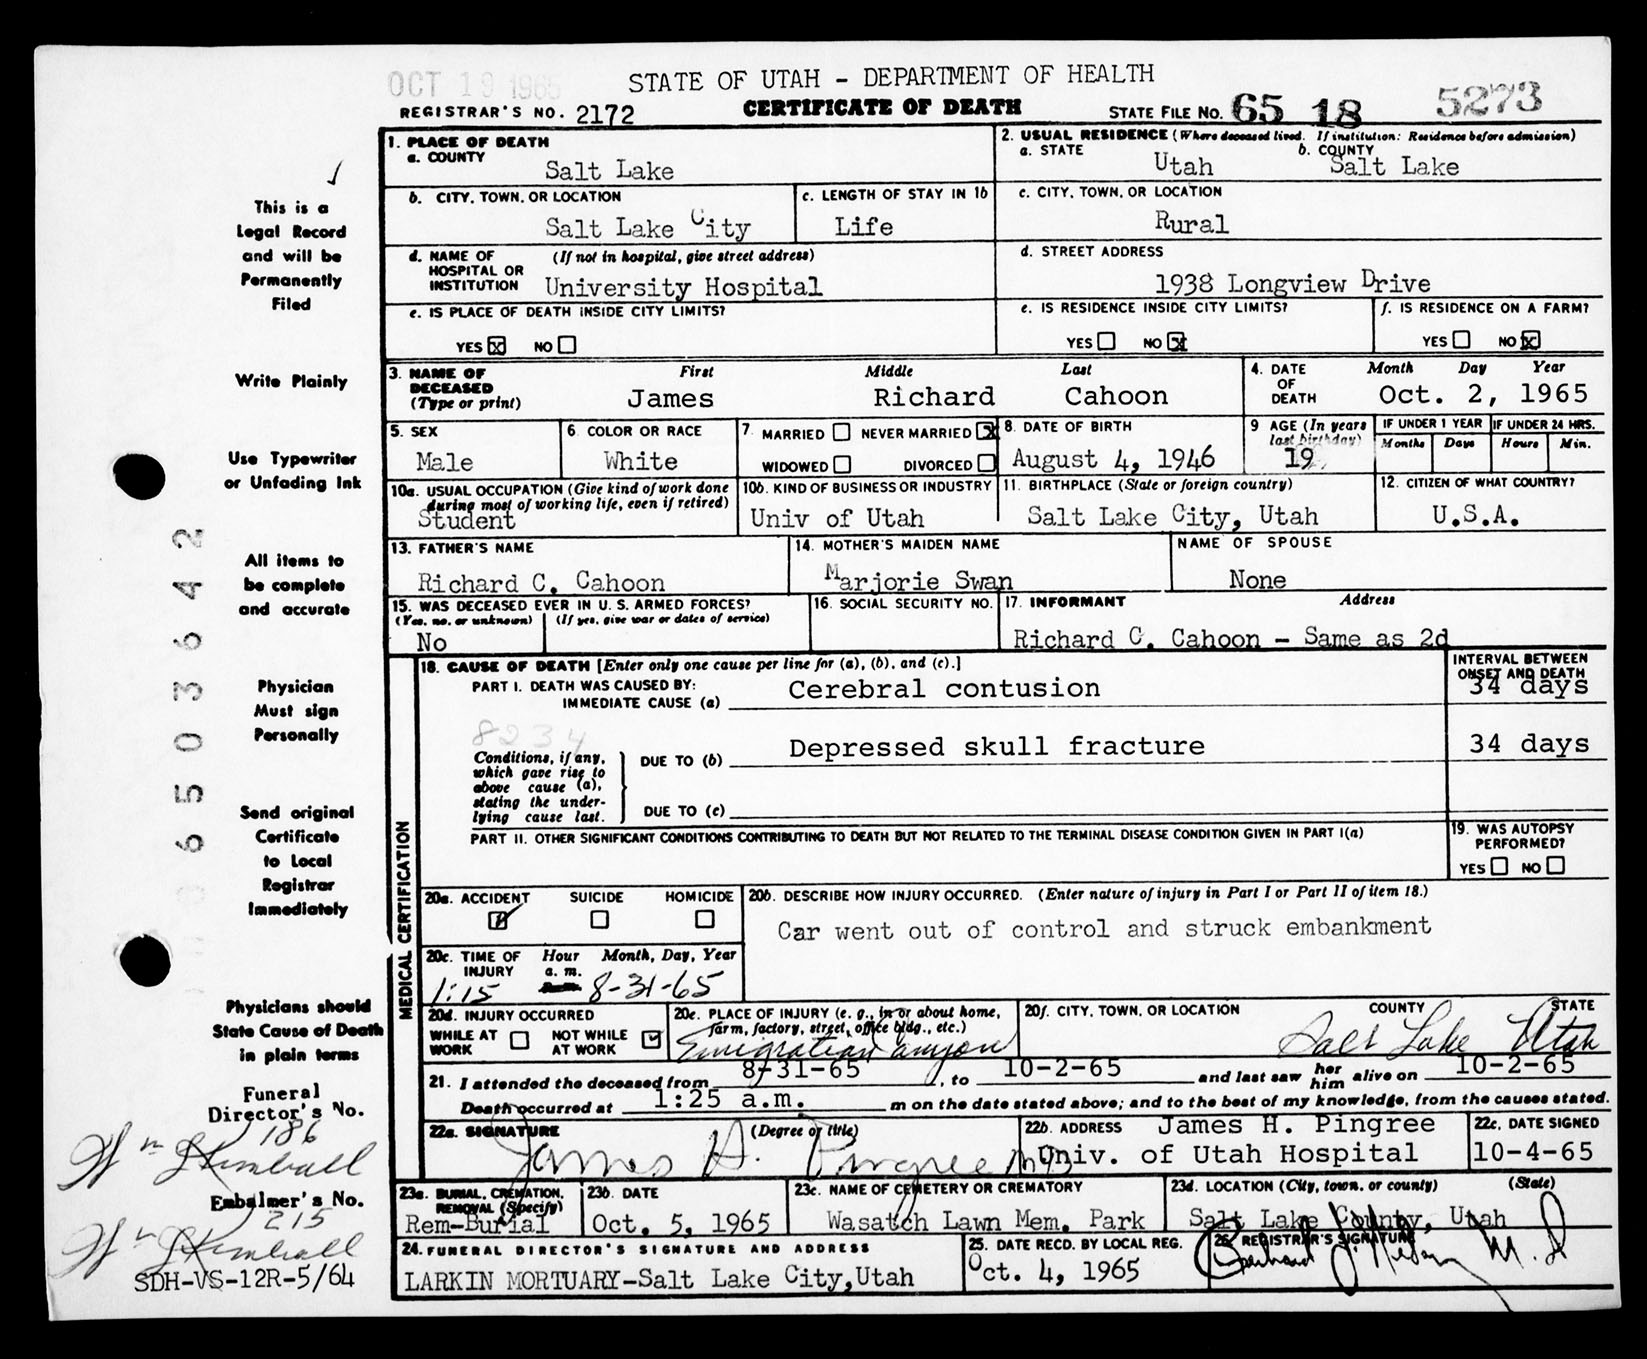 OCT 19 1965
STATE OF UTAH - DEPARTMENT OF HEALTH
REGISTRAR'S NO. 2172
CERTIFICATE OF DEATH
STATE FILE NO. 65 18 5273
1. PLACE OF DEATH
a. COUNTY
Salt Lake
2. USUAL RESIDENCE (Where deceased lived. If institution: Residence before admission)
a. STATE
Utah
b. COUNTY
Salt Lake
b. CITY, TOWN, OR LOCATION
Salt Lake City
c. LENGTH OF STAY IN 1b
Life
c. CITY, TOWN, OR LOCATION
Rural
d. NAME OF HOSPITAL OR INSTITUTION
(If not in hospital, give street address)
University Hospital
d. STREET ADDRESS
1938 Longview Drive
e. IS PLACE OF DEATH INSIDE CITY LIMITS?
YES X NO
e. IS RESIDENCE INSIDE CITY LIMITS?
YES NO X
f. IS RESIDENCE ON A FARM?
YES NO X
3. NAME OF DECEASED (Type or print)
First Middle Last
James Richard Cahoon
4. DATE OF DEATH
Month Day Year
Oct. 2, 1965
5. SEX
Male
6. COLOR OR RACE
White
7. MARRIED NEVER MARRIED X
WIDOWED DIVORCED
8. DATE OF BIRTH
August 4, 1946
9 AGE (In years last birthday)
19
IF UNDER 1 YEAR
Months Days
IF UNDER 24 HRS.
Hours Min.
10a. USUAL OCCUPATION (Give kind of work done during most of working life, even if retired)
Student
10b. KIND OF BUSINESS OR INDUSTRY
Univ of Utah
11. BIRTHPLACE (State or foreign country)
Salt Lake City, Utah
12. CITIZEN OF WHAT COUNTRY?
U.S.A.
13. FATHER'S NAME
Richard C. Cahoon
14. MOTHER'S MAIDEN NAME
Marjorie Swan
NAME OF SPOUSE
None
15. WAS DECEASED EVER IN U. S. ARMED FORCES?
(Yes, no, or unknown) (If yes, give war or dates of service)
No
16. SOCIAL SECURITY NO.
17. INFORMANT Address
Richard C. Cahoon - Same as 2d
MEDICAL CERTIFICATION
18. CAUSE OF DEATH [Enter only one cause per line for (a), (b), and (c).]
INTERVAL BETWEEN ONSET AND DEATH
PART I. DEATH WAS CAUSED BY:
IMMEDIATE CAUSE (a) Cerebral contusion
34 days
8234
Conditions, if any, which gave rise to above cause (a), stating the underlying cause last.
DUE TO (b) Depressed skull fracture
34 days
DUE TO (c)
PART II. OTHER SIGNIFICANT CONDITIONS CONTRIBUTING TO DEATH BUT NOT RELATED TO THE TERMINAL DISEASE CONDITION GIVEN IN PART I(a)
19. WAS AUTOPSY PERFORMED?
YES NO
20a. ACCIDENT SUICIDE HOMICIDE
20b. DESCRIBE HOW INJURY OCCURRED. (Enter nature of injury in Part I or Part II of item 18.)
Car went out of control and struck embankment
20c. TIME OF INJURY
Hour Month, Day, Year
1:15 a. m. 8-31-65
20d. INJURY OCCURRED
WHILE AT WORK NOT WHILE AT WORK
20e. PLACE OF INJURY (e. g., in or about home, farm, factory, street, office bldg., etc.)
Emigration Canyon
20f. CITY, TOWN, OR LOCATION COUNTY STATE
Salt Lake Utah
21. I attended the deceased from 8-31-65, to 10-2-65 and last saw her him alive on 10-2-65
Death occurred at 1:25 a.m. m on the date stated above; and to the best of my knowledge, from the causes stated.
22a. SIGNATURE (Degree or title)
James H. Pingree MD
22b. ADDRESS James H. Pingree
Univ. of Utah Hospital
22c. DATE SIGNED
10-4-65
23a. BURIAL, CREMATION, REMOVAL (Specify)
Rem-Burial
23b. DATE
Oct. 5, 1965
23c. NAME OF CEMETERY OR CREMATORY
Wasatch Lawn Mem. Park
23d. LOCATION (City, town, or county) (State)
Salt Lake County, Utah
24. FUNERAL DIRECTOR'S SIGNATURE AND ADDRESS
LARKIN MORTUARY-Salt Lake City,Utah
25. DATE RECD. BY LOCAL REG.
Oct. 4, 1965
26. REGISTRAR'S SIGNATURE
M.D.
This is a
Legal Record
and will be
Permanently
Filed
Write Plainly
Use Typewriter
or Unfading Ink
All items to
be complete
and accurate
Physician
Must sign
Personally
Send original
Certificate
to Local
Registrar
Immediately
Physicians should
State Cause of Death
in plain terms
Funeral
Director's No.
186
Wm Kimball
Embalmer's No.
215
Wm Kimball
SDH-VS-12R-5/64
6503642